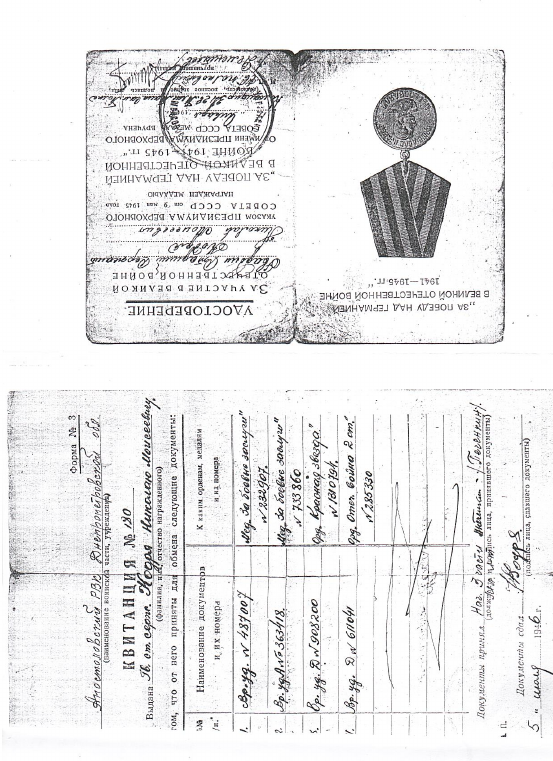 УДОСТОВЕРЕНИЕ
ЗА УЧАСТИЕ В ВЕЛИКОЙ
ОТЕЧЕСТВЕННОЙ ВОЙНЕ
Гвардии
Николай Моисеевич
УКАЗОМ ПРЕЗИДИУМА ВЕРХОВНОГО
СОВЕТА СССР от 9 мая 1945 года
НАГРАЖДЕН МЕДАЛЬЮ
„ЗА ПОБЕДУ НАД ГЕРМАНИЕЙ
В ВЕЛИКОЙ ОТЕЧЕСТВЕННОЙ
ВОЙНЕ 1941—1945 гг.“
ОТ ИМЕНИ ПРЕЗИДИУМА ВЕРХОВНОГО
СОВЕТА СССР МЕДАЛЬ ВРУЧЕНА
„ЗА ПОБЕДУ НАД ГЕРМАНИЕЙ
В ВЕЛИКОЙ ОТЕЧЕСТВЕННОЙ ВОЙНЕ
1941—1945 гг.“
Форма № 3
Апостоловский РВК Днепропетровской обл.
(наименование воинской части, учреждения)
КВИТАНЦИЯ № 130
Выдана Гв. ст. серж. Николаю Моисеевичу
(фамилия, имя, отчество награжденного)
том, что от него приняты для обмена следующие документы:
Наименование документов и их номера
К каким орденам, медалям и их номера
1. Вр. уд. № 487007 Мед. За боевые заслуги" № 232907.
2. Вр. уд. № 363418. Мед. За боевые заслуги" № 733860
3. Вр. уд. Д № 908200 Орд. Красная звезда"
Вр. уд. Д № 611041 Орд. Отеч. война 2 ст." № 285330
Документы принял Нач. 3 части
(должность и подпись лица, принявшего документы)
Документы сдал
(подпись лица, сдавшего документы)
„5" июля 1946 г.